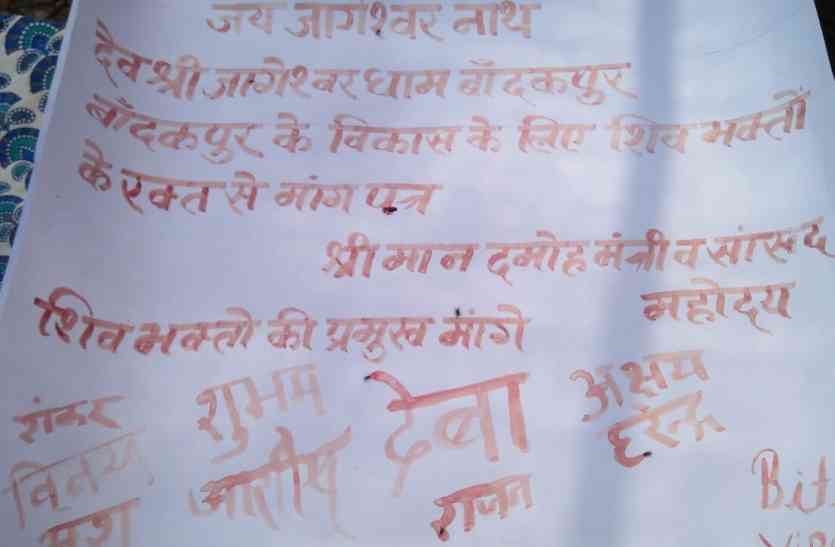 जय जागेश्वर नाथ
देव श्री जागेश्वर धाम बाँदकपुर
बाँदकपुर के विकास के लिए शिव भक्तों
के रक्त से मांग पत्र
श्री मान दमोह मंत्री व सांसद
महोदय
शिव भक्तो की प्रमुख मांगे
शंकर शुभम देबा अक्षय
विनय आशीष राजन हरेन्द्र
Bit